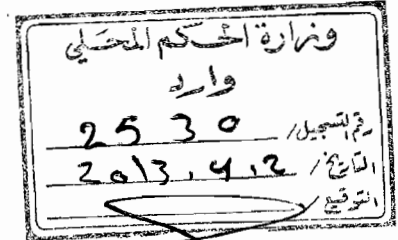 وزارة الحكم المحلي
وارد
رقم التسجيل / 2530
التاريخ / 2013.4.2
التوقيع /